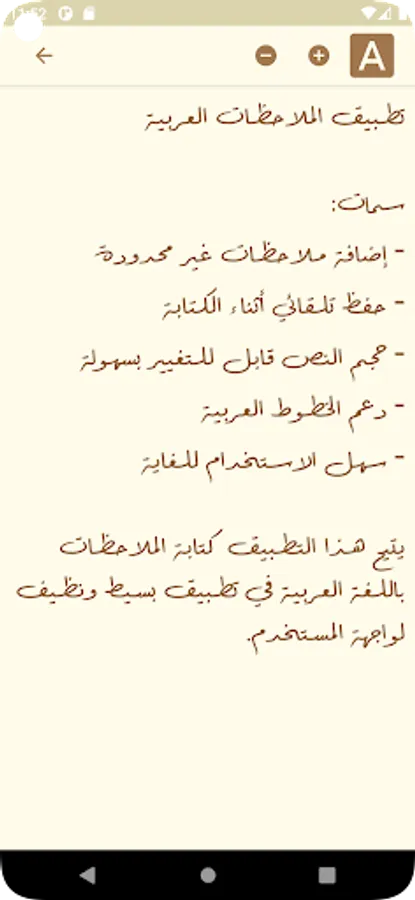 11:52
A
تطبيق الملاحظات العربية
سمات:
- إضافة ملاحظات غير محدودة
- حفظ تلقائي أثناء الكتابة
- حجم النص قابل للتغيير بسهولة
- دعم الخطوط العربية
- سهل الاستخدام للغاية
يتيح هذا التطبيق كتابة الملاحظات
باللغة العربية في تطبيق بسيط ونظيف
لواجهة المستخدم.